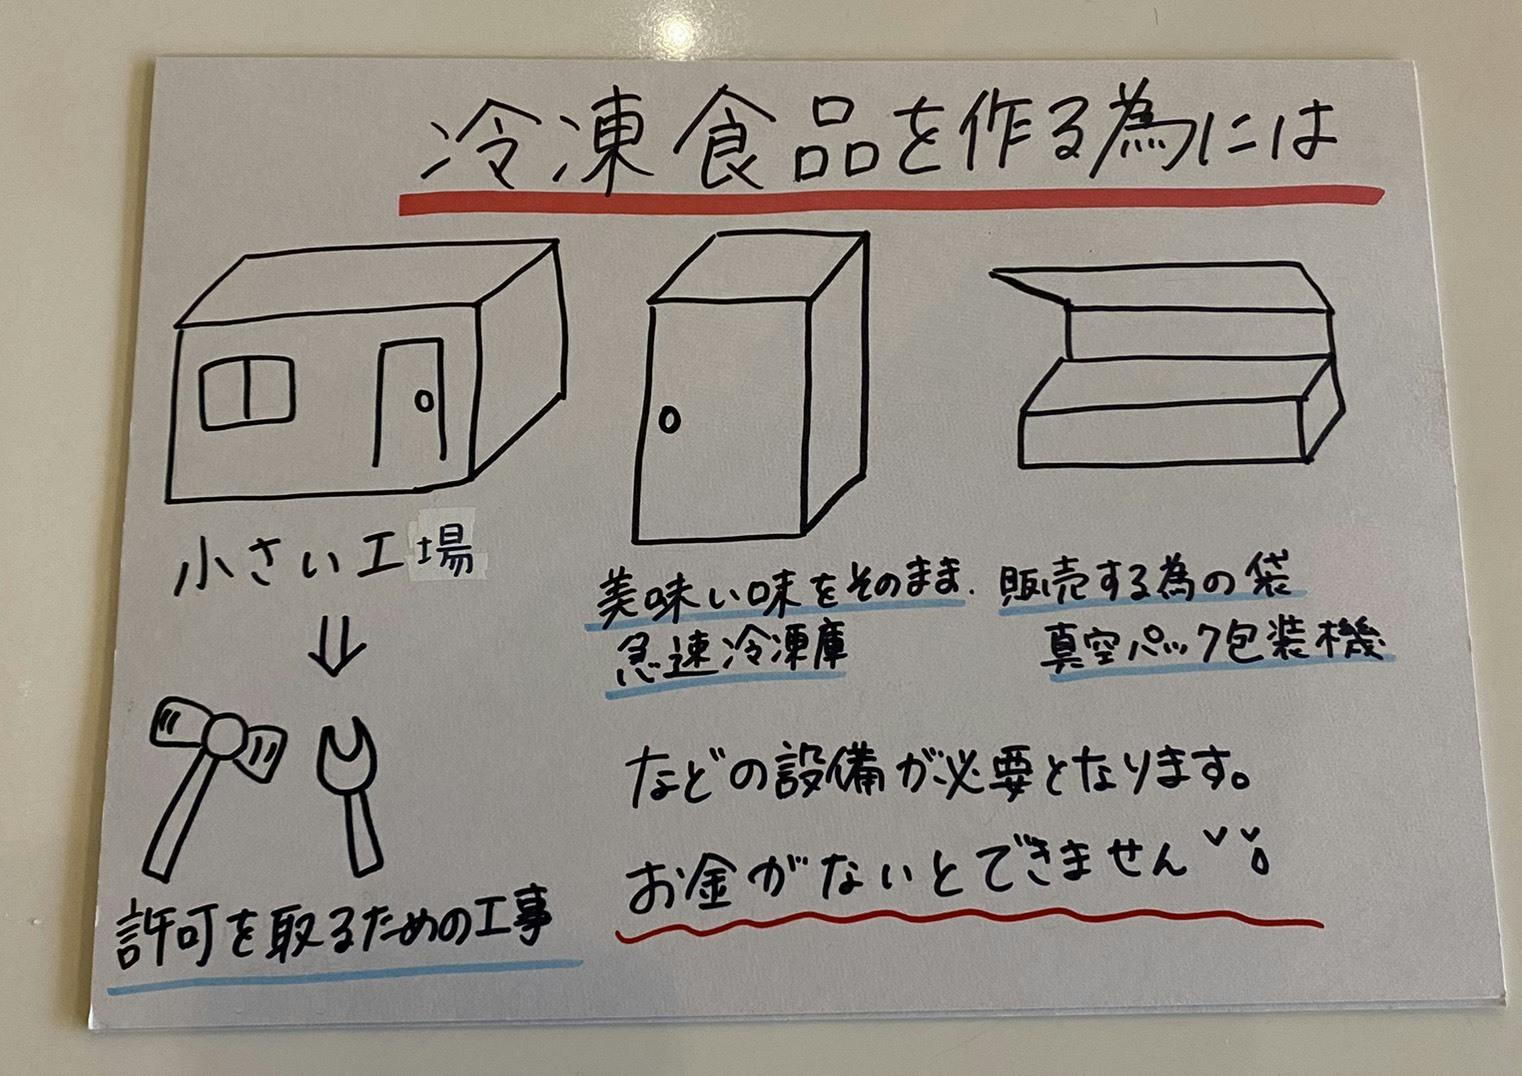 冷凍食品を作る為には
小さい工場
⇓
許可を取るための工事
美味い味をそのまま.
急速冷凍庫
販売する為の袋
真空パック包装機
などの設備が必要となります。
お金がないとできません